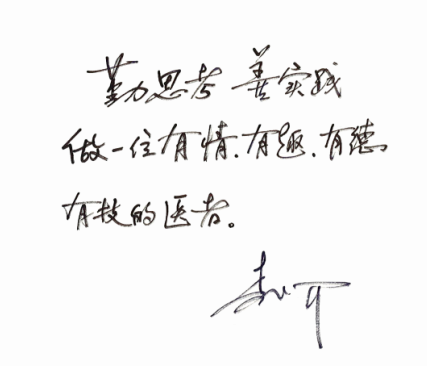 勤思考 善实践
做一位有情、有趣、有德、
有技的医者。